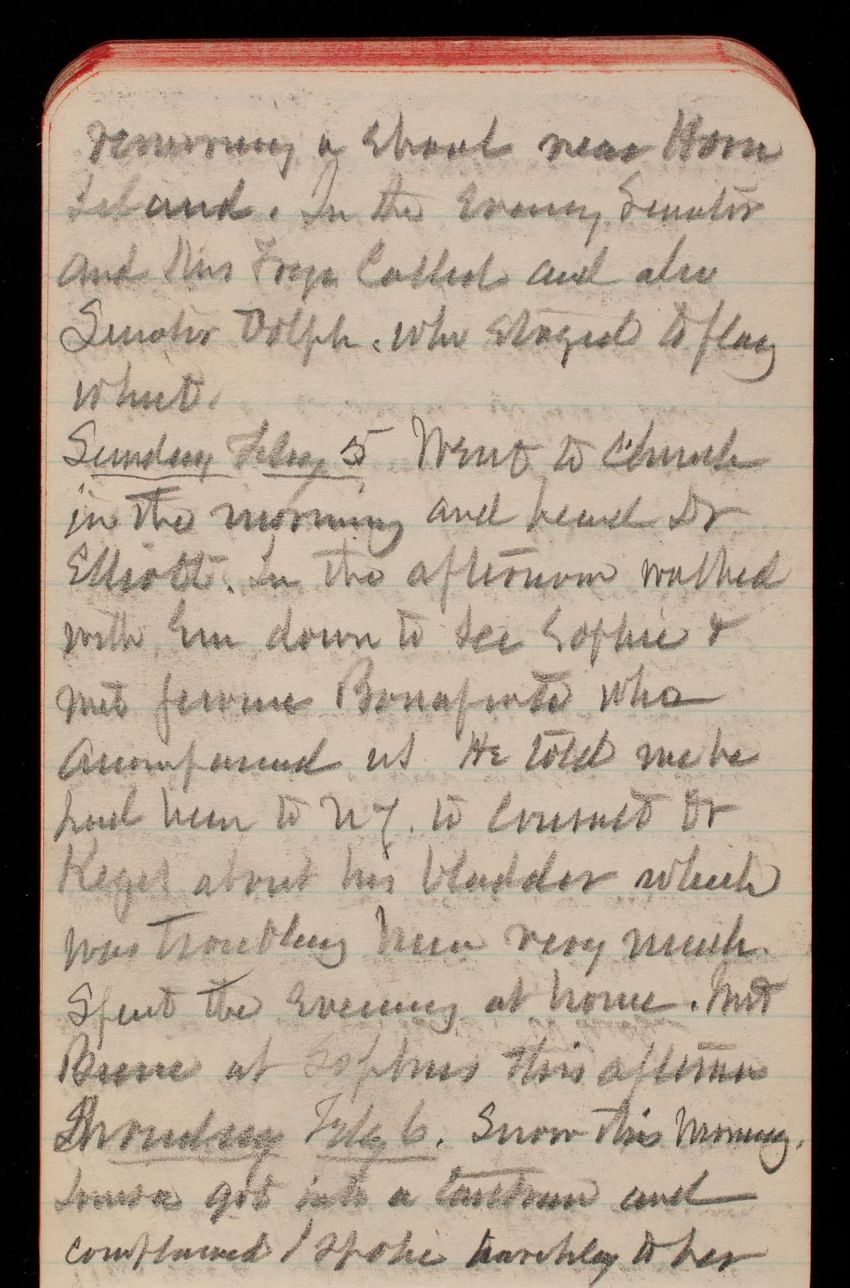 removing a shoal near Horn
Island. In the Evening Senator
and Mrs Frye Called and also
Senator Dolph. who stayed to play
whist.
Sunday Feby 5 Went to Church
in the morning and heard Dr
Elliott. In the afternoon walked
with Em down to see Sophie &
met Jerome Bonaparte who
accompanied us He told me he
had been to N.Y. to consult Dr
Keyes about his bladder which
was troubling him very much.
Spent the Evening at home. Met
at Sophies this afternoon
Monday Feby 6. Snow this Morning.
Louisa got into a tantrum and
complained I spoke harshly to her